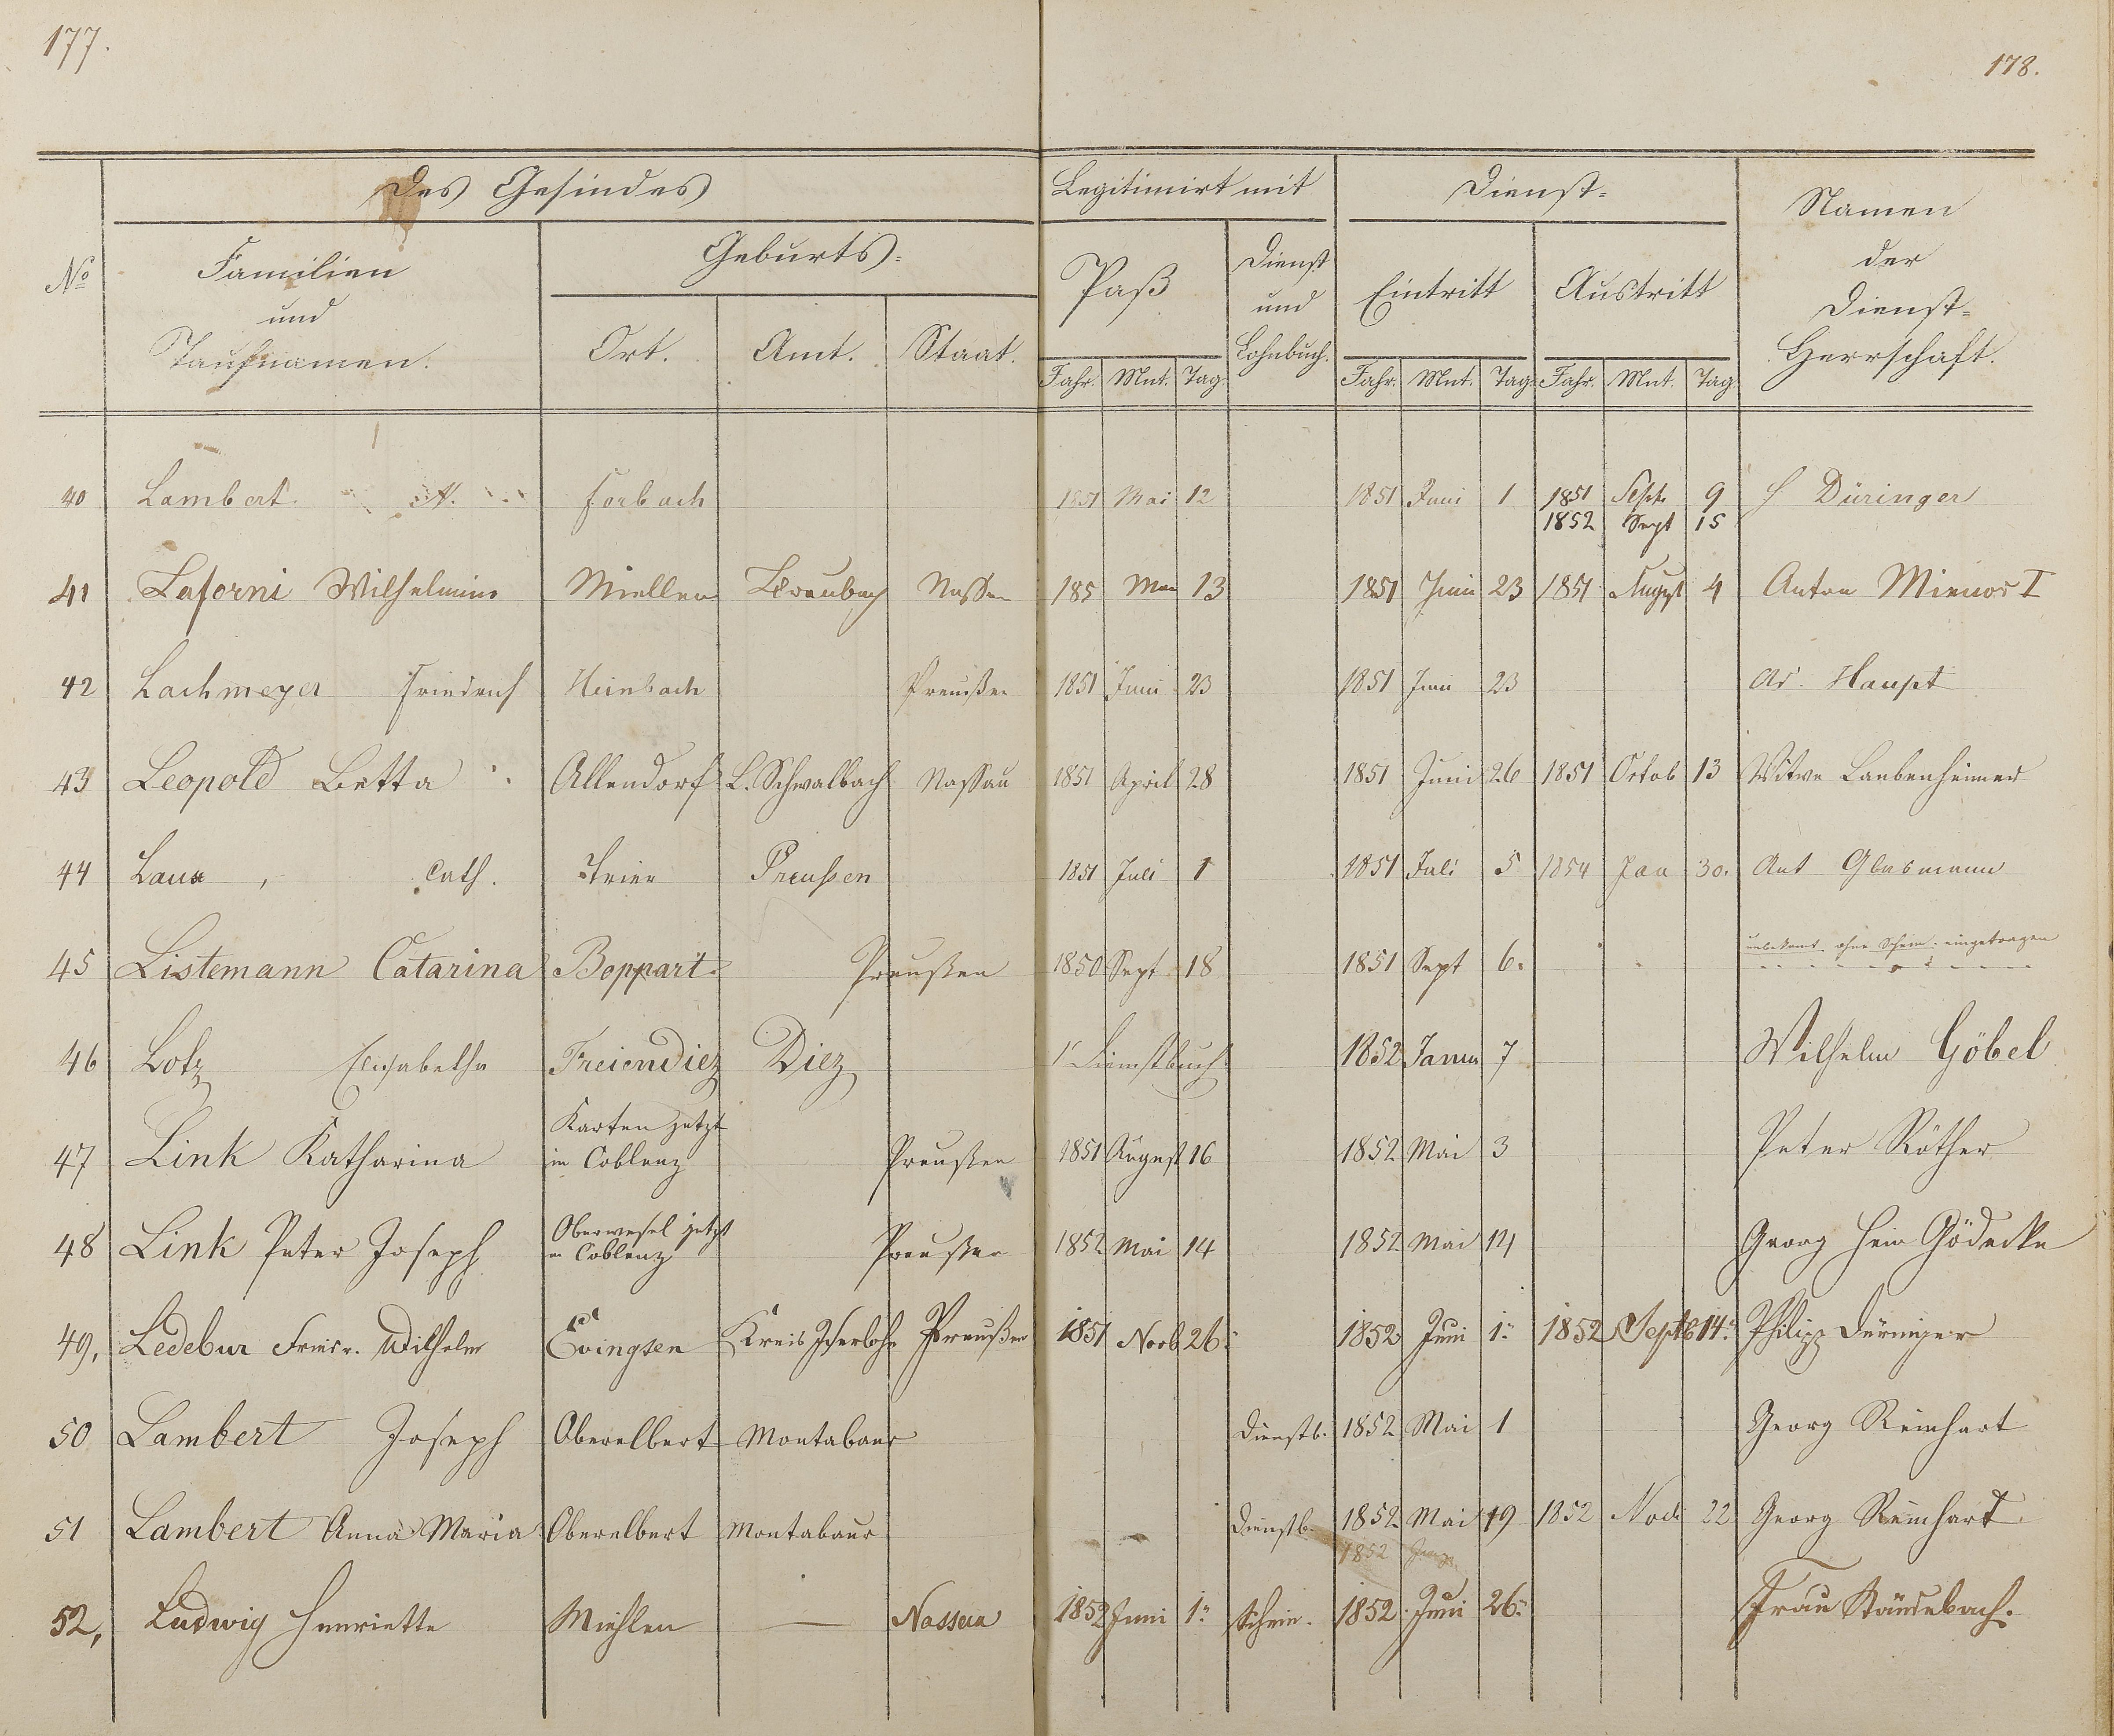 177.
178.
Des Gesindes
Legitimirt mit
Dienst-
Namen der Dienst-Herrschaft.
No
Familien und Taufnamen.
Geburts-
Paß
Dienst und Lohnbuch.
Eintritt
Austritt
Ort.
Amt.
Staat.
Jahr. Mnt. Tag.
Jahr. Mnt. Tag. Jahr. Mnt. Tag.
40 Lambert A. Forbach 1851 Mai 12 1851 Juni 1 1851 Sept. 9 H Düringer
1852 Sept 15
41 Laforni Wilhelmine Miellen Braubach Nassau 185 Mai 13 1851 Juni 23 1851 August 4 Anton I
42 Lachmeyer Friedrich Heimbach Preußen 1851 Juni 23 1851 Juni 23 Ad. Haupt
43 Leopold Betta Allendorf L. Schwalbach Nassau 1851 April 28 1851 Juni 26 1851 Octob 13 Witwe Laubenheimer
44 Laux, Cath. Trier Preussen 1851 Juli 1 1851 Juli 5 1854 Jan 30. Ant Glasmann
45 Listemann Catarina Boppart Preußen 1850 Sept 18 1851 Sept 6. unbekant. ohne Schein. eingetragen
46 Lotz Elisabetha Freiendiez Diez 1 Dienstbuch 1852 Janu 7 Wilhelm Göbel
47 Link Katharina Karten jetzt in Coblenz Preußen 1851 August 16 1852 Mai 3 Peter Röther
48 Link Peter Joseph Oberwesel jetzt in Coblenz Preußen 1852 Mai 14 1852 Mai 14 Georg Hein Gödecke
49, Ledebur Friedr. Wilhelm Evingsen Kreis Iserlohn Preußen 1851 Novb 26. 1852 Juni 1. 1852 Septb 14. Philipp Düringer
50 Lambert Joseph Oberelbert Montabaur Dienstb. 1852 Mai 1 Georg Reinhart
51 Lambert Anna Maria Oberelbert Montabaur Dienstb. 1852 Mai 19 1852 Nov 22 Georg Reinhart
1852
52, Ludwig Henriette Miehlen — Nassau 1852 Juni 1. Schein. 1852 Juni 26. Frau Stäudebach.